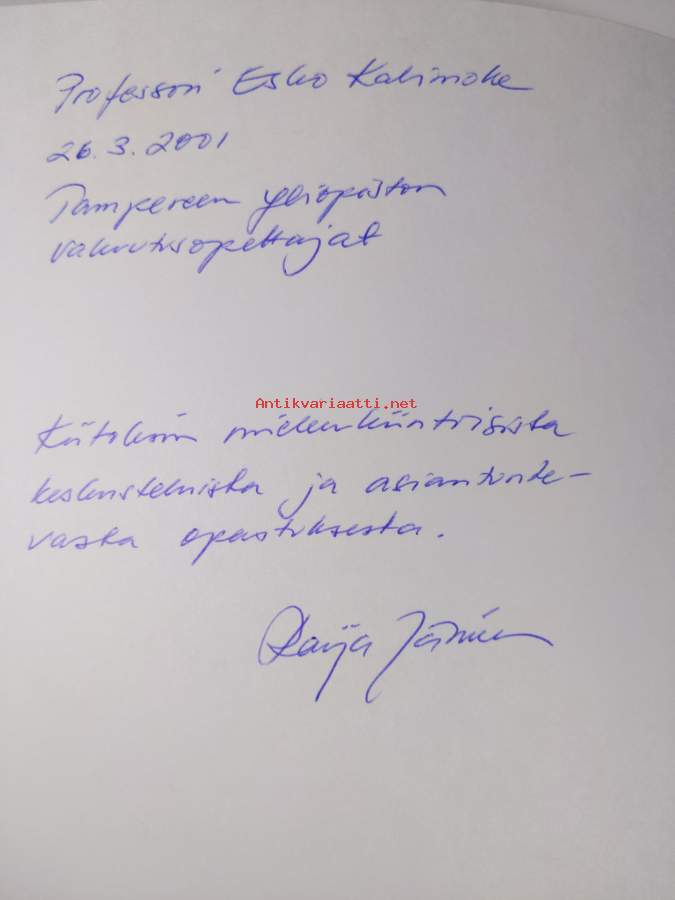 Professori Esko Kalimolle
26.3.2001
Tampereen yliopiston
vakuutusopettajat
Antikvariaatti.net
Kiitoksin mielenkiintoisista
keskusteluista ja asiantunte-
vasta opastuksesta.
Raija